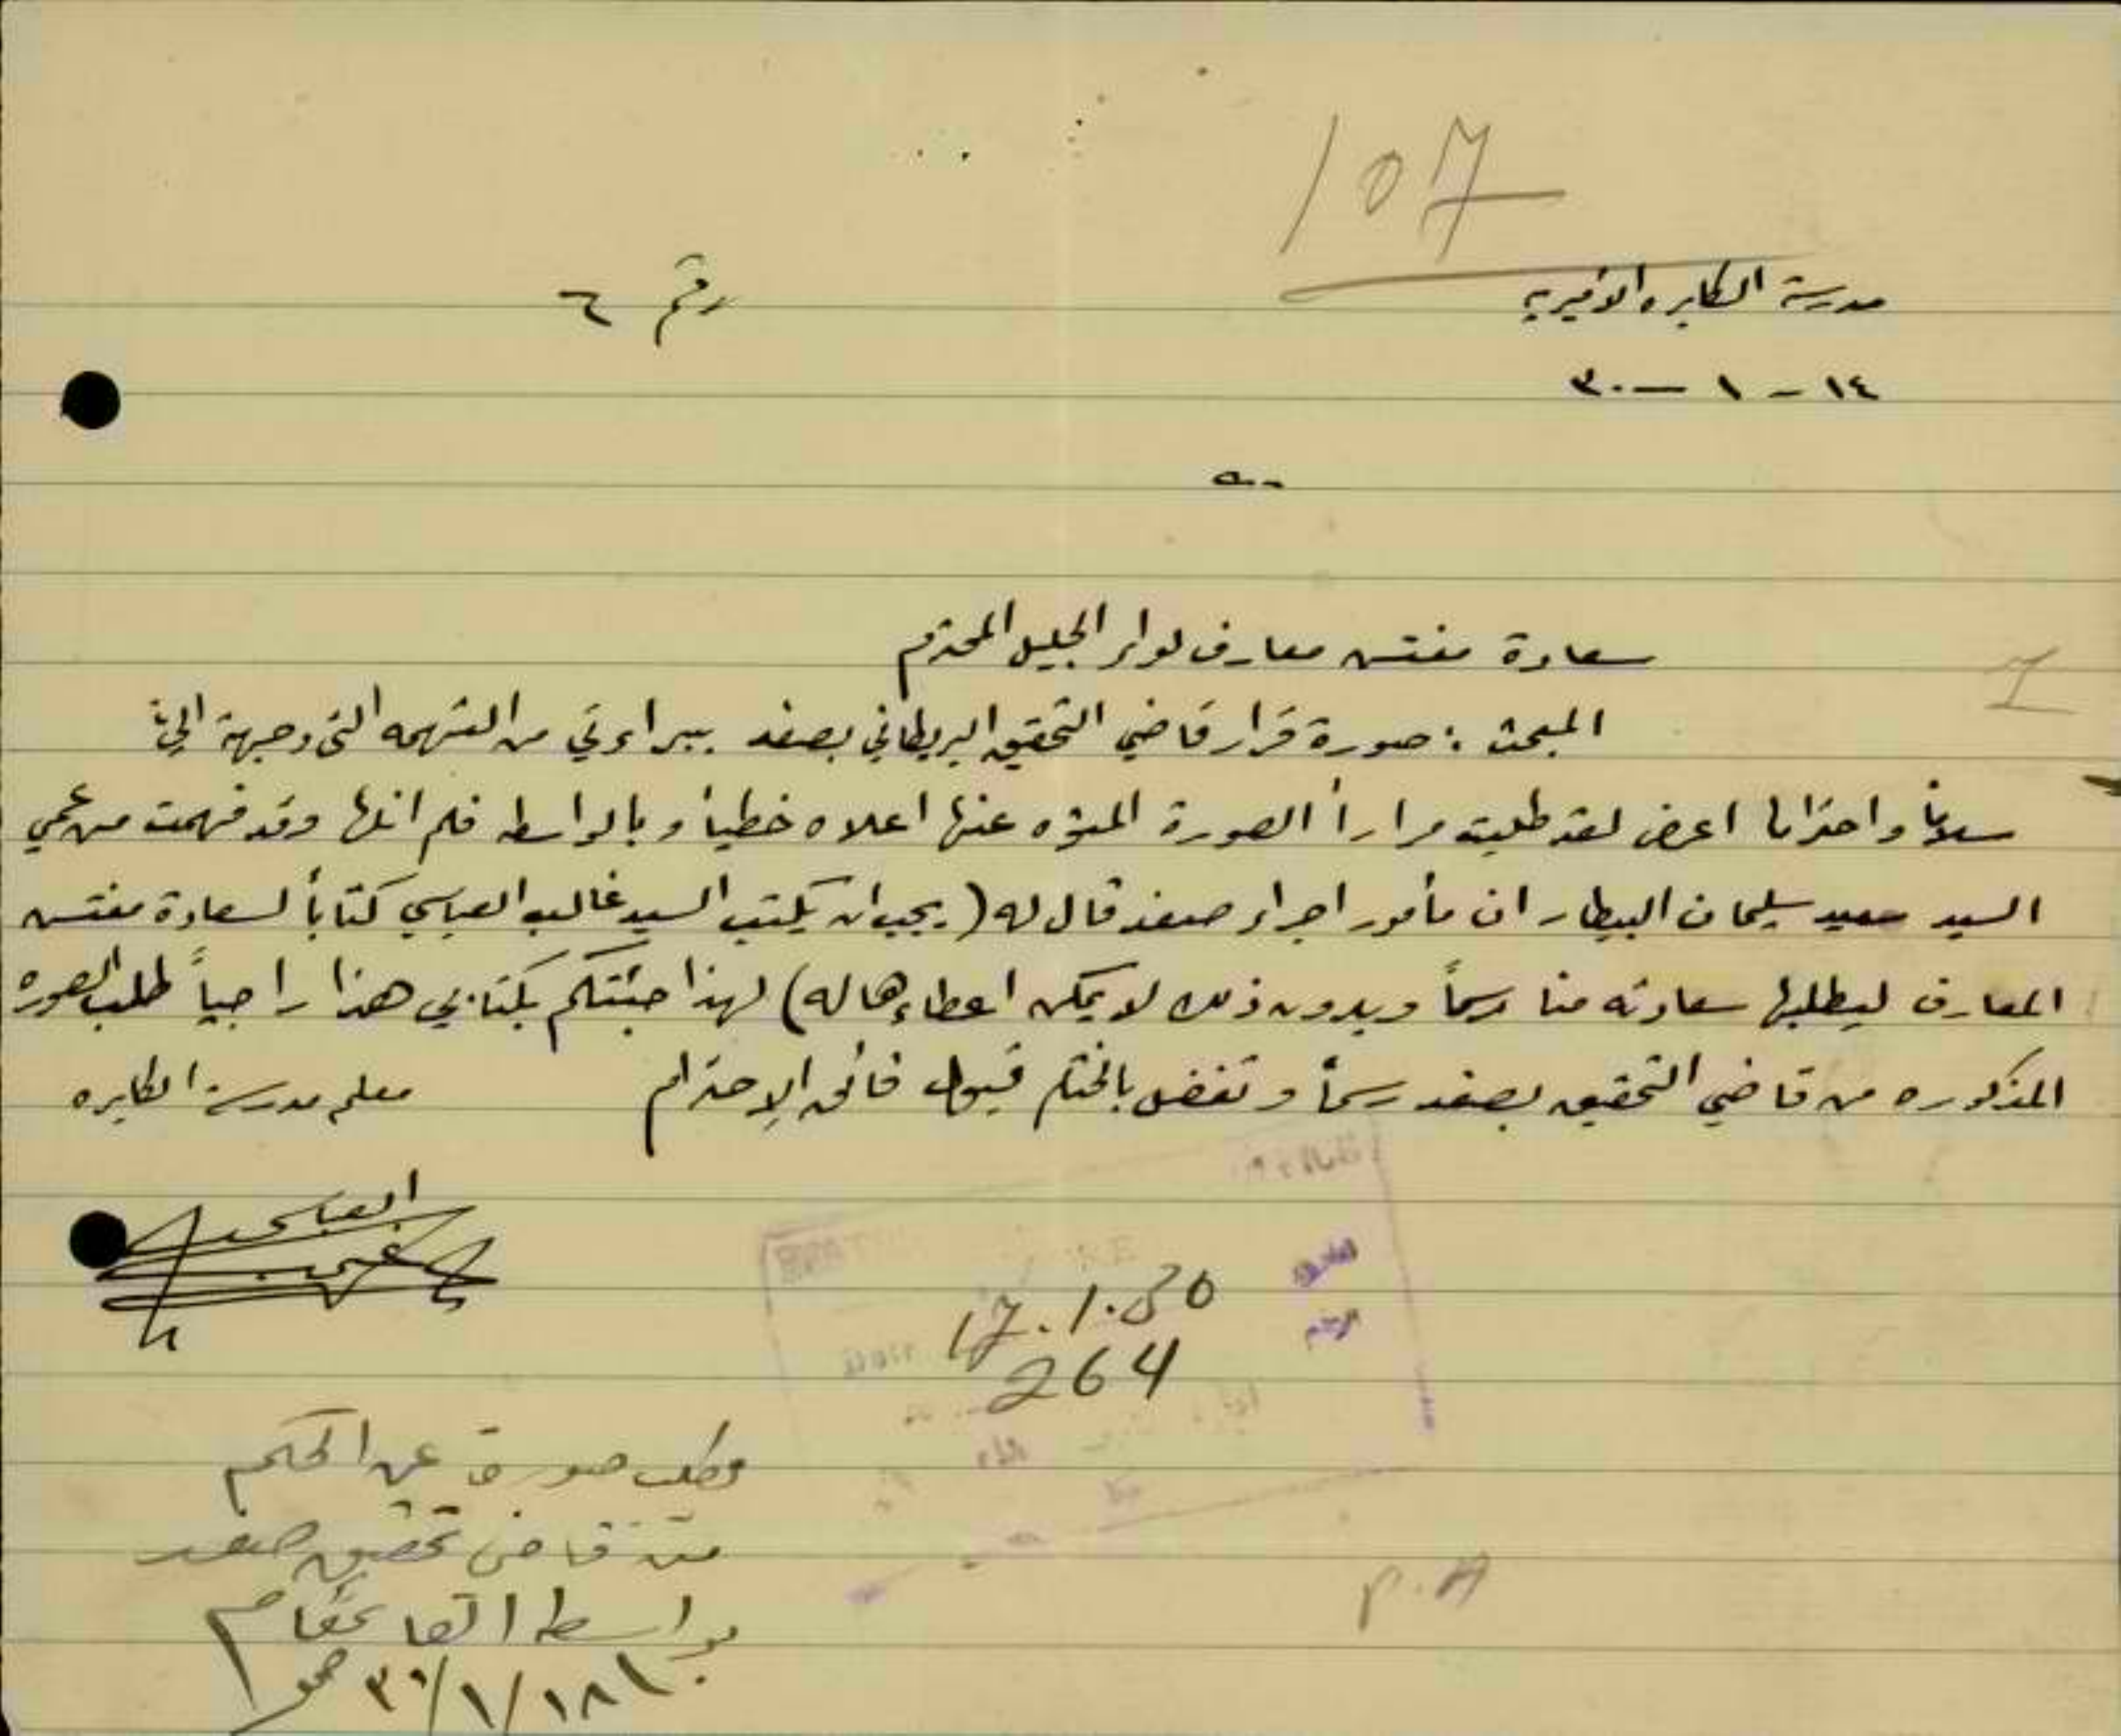 107
مدرسة الكابره الاميرية
رقم ٦
١٤ - ١ - ٣٠
سعادة مفتش معارف لواء الجليل المحترم
المبحث : صورة قرار قاضي التحقيق البريطاني بصفد ببراءتي من التهمه التى وجهة اليّ
سلاماً واحتراما اعرض لقد طلبت مراراً الصورة المنوّه عنها اعلاه خطياً وبالواسطه فلم انلها وقد فهمت من عمي
السيد سعيد سليمان البيطار ان مأمور اجراء صفد قال له (يجب ان يكتب السيد غالب العباسي كتاباً لسعادة مفتش
المعارف ليطلبها سعادته منا رسماً وبدون ذلك لا يمكن اعطاءها له) لهذا جئتكم بكتابي هذا راجياً طلب الصوره
المذكوره من قاضي التحقيق بصفد رسماً وتفضل بالختام قبول فائق الإحترام
معلم مدرسة الكابره
العباسي
17.1.30
264
وطلب صورة عن الحكم
من قاضى تحقيق صفد
بواسطه القائمقام
١٨/١/٣٠
P.A